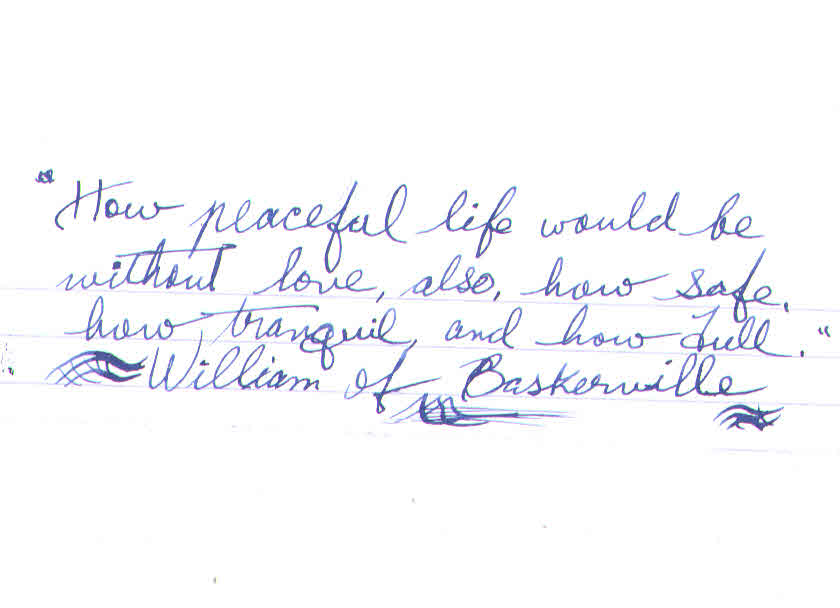 "How peaceful life would be
without love, also, how safe,
how tranquil, and how dull."
William of Baskerville